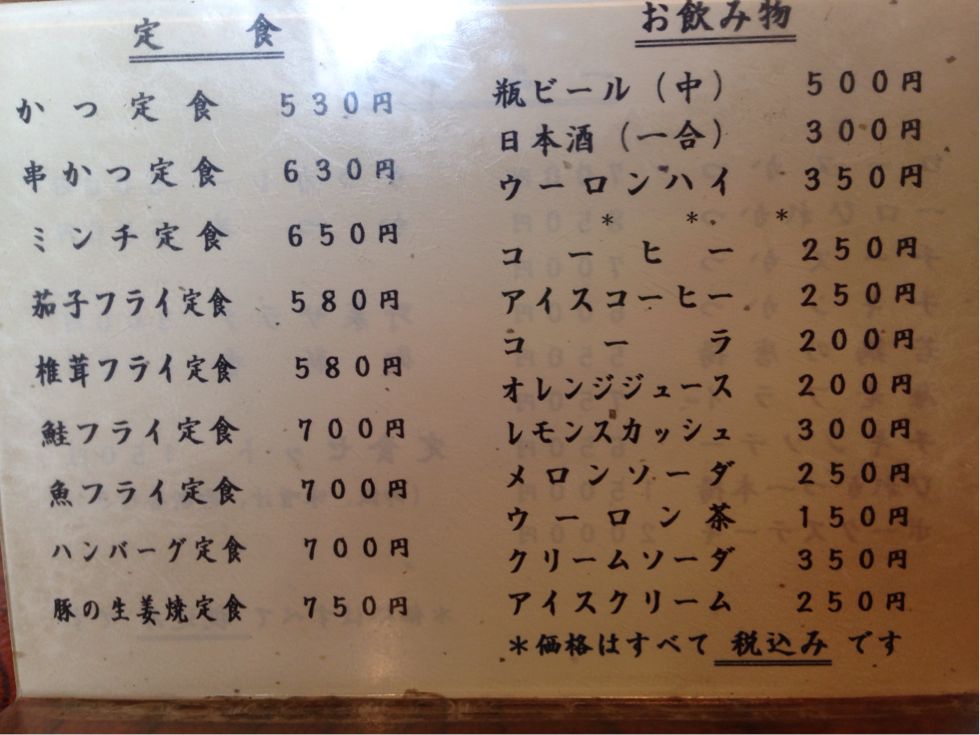 定食
かつ定食 530円
串かつ定食 630円
ミンチ定食 650円
茄子フライ定食 580円
椎茸フライ定食 580円
鮭フライ定食 700円
魚フライ定食 700円
ハンバーグ定食 700円
豚の生姜焼定食 750円
お飲み物
瓶ビール(中) 500円
日本酒(一合) 300円
ウーロンハイ 350円
* * *
コーヒー 250円
アイスコーヒー 250円
コーラ 200円
オレンジジュース 200円
レモンスカッシュ 300円
メロンソーダ 250円
ウーロン茶 150円
クリームソーダ 350円
アイスクリーム 250円
*価格はすべて 税込み です